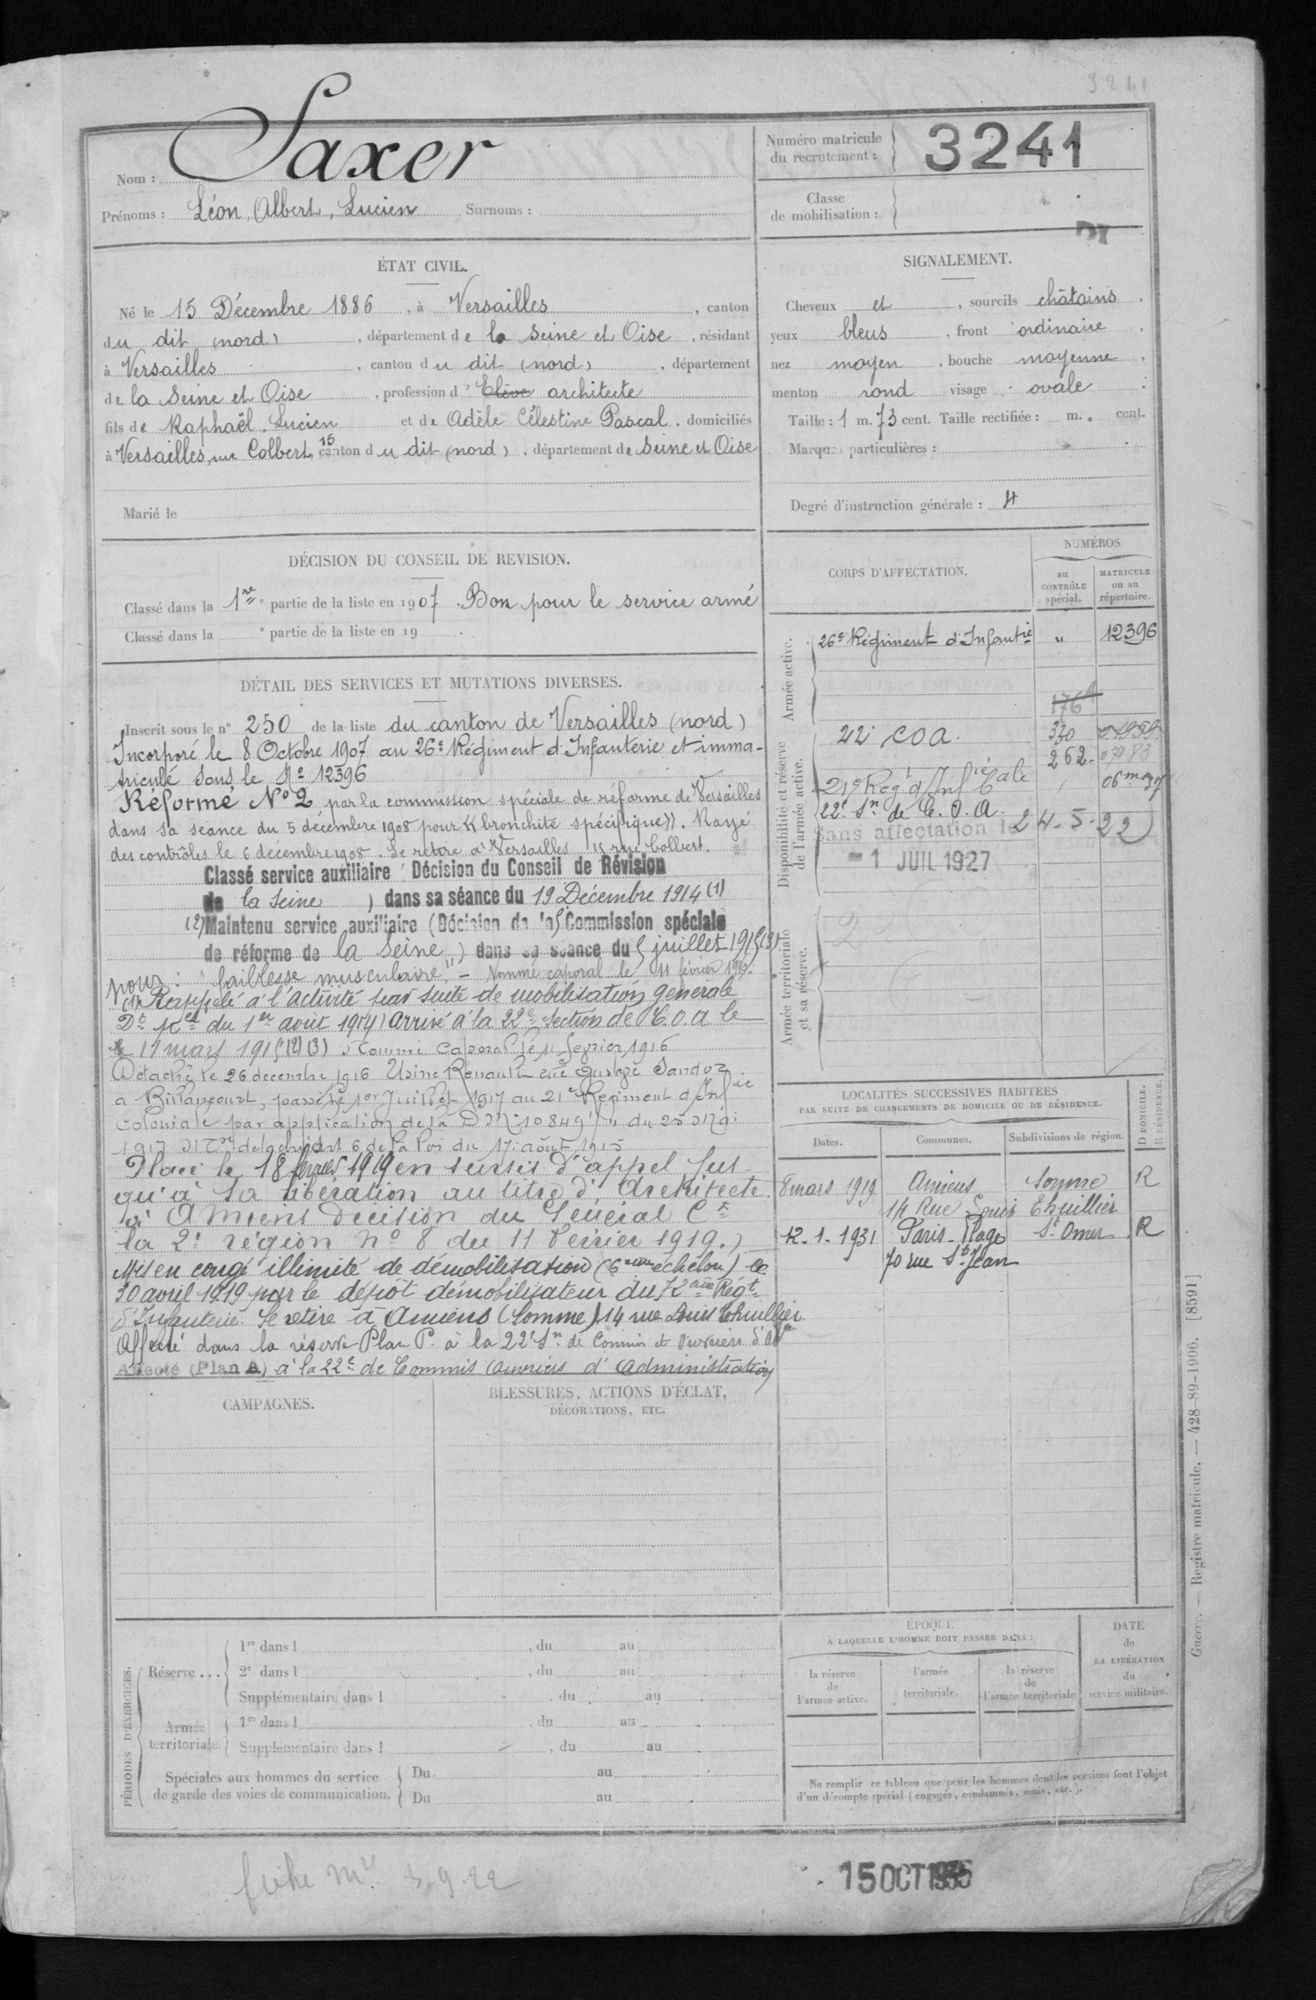 3241
Nom : Saxer
Prénoms : Léon, Albert, Lucien Surnoms :
Numéro matricule du recrutement : 3241
Classe de mobilisation :
ÉTAT CIVIL.
Né le 15 Décembre 1886, à Versailles, canton
du dit (nord), département de la Seine et Oise, résidant
à Versailles, canton du dit (nord), département
de la Seine et Oise, profession d'Elève architecte
fils de Raphaël, Lucien et de Adèle Célestine Pascal, domiciliés
à Versailles, rue Colbert 15 canton du dit (nord), département de Seine et Oise
Marié le
SIGNALEMENT.
Cheveux et, sourcils châtains,
yeux bleus, front ordinaire,
nez moyen, bouche moyenne,
menton rond visage ovale
Taille : 1 m. 73 cent. Taille rectifiée : m. cent.
Marques particulières :
Degré d'instruction générale : 4
DÉCISION DU CONSEIL DE REVISION.
Classé dans la 1re partie de la liste en 1907. Bon pour le service armé
Classé dans la e partie de la liste en 19 .
DÉTAIL DES SERVICES ET MUTATIONS DIVERSES.
Inscrit sous le n° 250 de la liste du canton de Versailles (nord)
Incorporé le 8 Octobre 1907 au 26e Régiment d'Infanterie et imma-
triculé sous le No 12396
Réformé No 2 par la commission spéciale de réforme de Versailles
dans sa séance du 5 décembre 1908 pour « bronchite spécifique ». Rayé
des contrôles le 6 décembre 1908. Se retire à Versailles 15 rue Colbert.
Classé service auxiliaire Décision du Conseil de Révision
de la Seine ) dans sa séance du 19 Décembre 1914 (1)
(2) Maintenu service auxiliaire (Décision de la Commission spéciale
de réforme de la Seine) dans sa séance du 5 juillet 1915 (3)
pour : "faiblesse musculaire" - Nommé caporal le 11 février 1916.
(1) Rappelé à l'activité par suite de mobilisation générale
Dt du 1er août 1914) Arrivé à la 22e Section de C.O.A le
le 11 mars 1915 (2) (3) Nommé Caporal le 11 février 1916
Détaché le 26 décembre 1916 Usine Renault rue Gustave Sandoz
à Billancourt, passé le 1er Juillet 1917 au 21e Régiment d'Infie
Coloniale par application de la DM 10849 du 25 Mai
1917 de la loi du 17 août 1915
Placé le 18 février 1919 en sursis d'appel jus-
qu'à sa libération au titre d'Architecte
à Amiens Décision du Général Ct
la 2e région n° 8 du 11 février 1919.)
Mis en congé illimité de démobilisation (6eme échelon) le
30 avril 1919 par le dépôt démobilisateur du 72eme Régt
d'Infanterie. Se retire à Amiens (Somme) 14 rue Louis Thuillier
Affecté dans la réserve Plan P. à la 22e Sn de Commis et Ouvriers d'Adon
Affecté (Plan A) à la 22e de Commis Ouvriers d'Administration
CORPS D'AFFECTATION.
NUMÉROS
au CONTRÔLE spécial.
MATRICULE ou au répertoire.
Armée active.
26e Régiment d'Infantie " 12396
Disponibilité et réserve de l'armée active.
1764
22e COA. 330
262
21e Régt d'Infie Cale
22e Sn de C.O.A.
Sans affectation 24-5-22
1 JUIL 1927
Armée territoriale et sa réserve.
LOCALITÉS SUCCESSIVES HABITÉES
PAR SUITE DE CHANGEMENTS DE DOMICILE OU DE RÉSIDENCE.
Dates. Communes. Subdivisions de région. D DOMICILE. R RÉSIDENCE.
8 mars 1919 Amiens Somme R
14 Rue Louis Thuillier
12-1-1931 Paris-Plage St Omer R
70 rue St Jean
CAMPAGNES.
BLESSURES, ACTIONS D'ÉCLAT,
DÉCORATIONS, ETC.
PÉRIODES D'EXERCICES.
Réserve ... 1re dans l , du au
2e dans l , du au
Supplémentaire dans l , du au
Armée territoriale. 1re dans l , du au
Supplémentaire dans l , du au
Spéciales aux hommes du service Du au
de garde des voies de communication. Du au
ÉPOQUE
À LAQUELLE L'HOMME DOIT PASSER DANS :
la réserve de l'armée active.
l'armée territoriale.
la réserve de l'armée territoriale
DATE de LA LIBÉRATION du service militaire.
Ne remplir ce tableau que pour les hommes dont les services font l'objet
d'un décompte spécial (engagés, condamnés, omis, etc.).
Guerre. — Registre matricule. — 428-89-1906. [8591]
15 OCT 1935